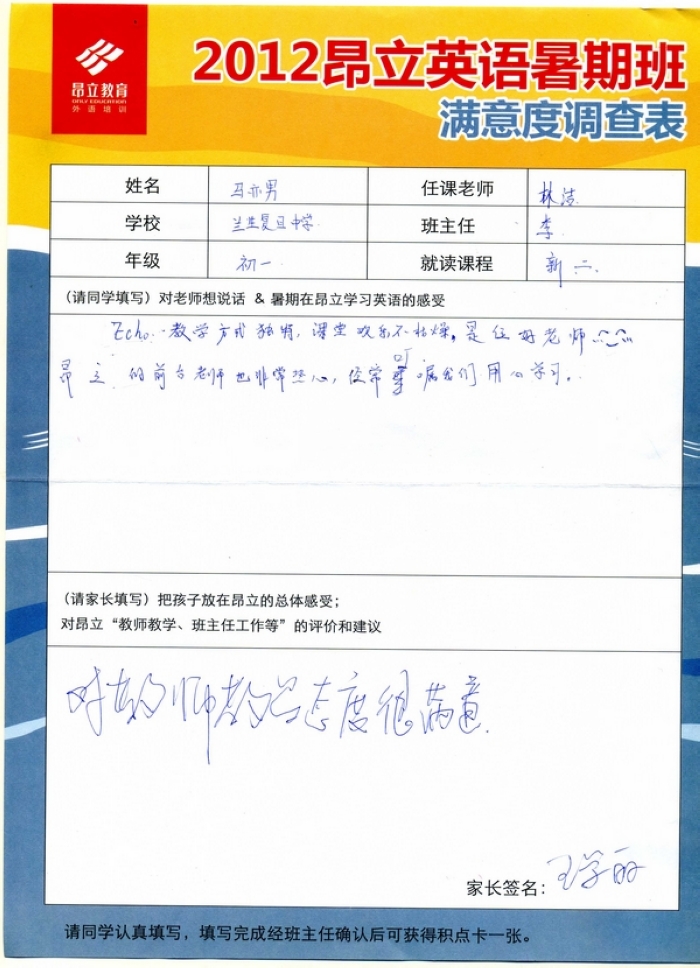 昂立教育
ONLY EDUCATION
外语培训
2012昂立英语暑期班
满意度调查表
姓名 马亦男 任课老师 林洁
学校 兰生复旦中学 班主任 李
年级 初一 就读课程 新二
(请同学填写)对老师想说话 & 暑期在昂立学习英语的感受
Echo.教学方式独特,课堂欢乐不枯燥。是位好老师
昂立的前台老师也非常热心,经常叮嘱我们用心学习。
(请家长填写)把孩子放在昂立的总体感受;
对昂立“教师教学、班主任工作等”的评价和建议
对教师教学态度很满意.
家长签名:王学丽
请同学认真填写,填写完成经班主任确认后可获得积点卡一张。